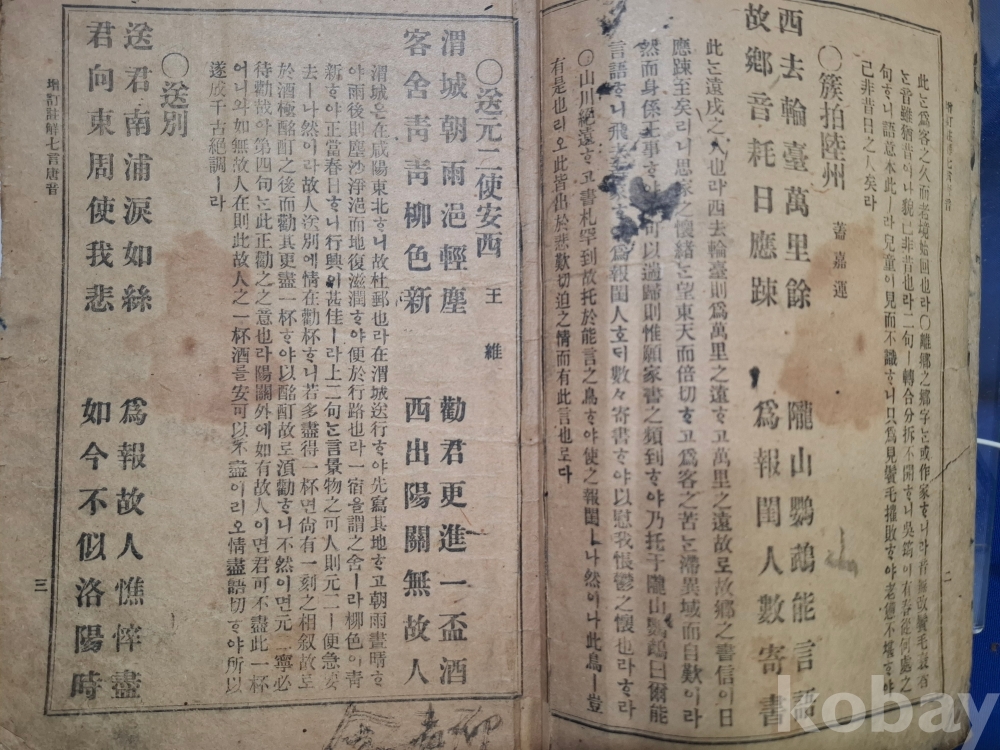 增訂註解七言唐音
二
此는爲客之久而老境始回也라〇離鄉之鄉字는或作家ᄒᆞ니라音無改鬢毛衰者
는音雖猶昔이나貌已非昔也라二句ㅣ轉合分拆不開ᄒᆞ니吳筠이有春從何處之
句ᄒᆞ니語意本此ㅣ라兒童이見而不識ᄒᆞ니只爲見鬢毛摧敗ᄒᆞ야老憊不堪ᄒᆞ야
己非昔日之人矣라
〇簇拍陸州 蓋嘉運
西去輪臺萬里餘 隴山鸚鵡能言語
故鄉音耗日應踈 爲報閨人數寄書
此는遠戍之人也라西去輪臺則爲萬里之遠ᄒᆞ고萬里之遠故로故鄉之書信이日
應踈至矣리니思家之懷緖는望東天而倍切ᄒᆞ고爲客之苦는滯異域而自歎이라
然而身係王事ᄒᆞ야可以過歸則惟願家書之頻到ᄒᆞ야乃托于隴山鸚鵡曰爾能
言語ᄒᆞ니飛爲報閨人ᄒᆞ되數々寄書ᄒᆞ야以慰我悵鬱之懷也라ᄒᆞ라
〇山川絕遠ᄒᆞ고書札罕到故托於能言之鳥ᄒᆞ야使之報閨ㅣ나然이나此鳥ㅣ豈
有是也리오此皆出於悲歎切迫之情而有此言也로다
〇送元二使安西 王維
渭城朝雨浥輕塵 勸君更進一盃酒
客舍靑靑柳色新 西出陽關無故人
渭城은在咸陽東北ᄒᆞ니故杜郵也라在渭城送行ᄒᆞ야先寫其地ᄒᆞ고朝雨晝晴ᄒᆞ
야雨後則塵沙淨浥而地復滋潤ᄒᆞ야便於行路也라一宿을謂之舍ㅣ라柳色이靑
新ᄒᆞ야正當春日ᄒᆞ니行興이甚佳ㅣ라上二句는言景物之可人則元二ㅣ便急要
去ㅣ나然이라故人送別에情在勸杯ᄒᆞ니若多盡得一杯면尙有一刻之相叙故로
於酒極酩酊之後而勸其更盡一杯ᄒᆞ야以酩酊故로湏勸ᄒᆞ니不然이면元二寧必
待勸哉아第四句는此正勸之之意也라陽關外에如有故人이면君可不盡此一杯
어니와如無故人在則此故人之一杯酒를安可以不盡이리오情盡語切ᄒᆞ야所以
遂成千古絕調ㅣ라
〇送別
送君南浦淚如絲 爲報故人憔悴盡
君向東周使我悲 如今不似洛陽時
增訂註解七言唐音
三
kobay